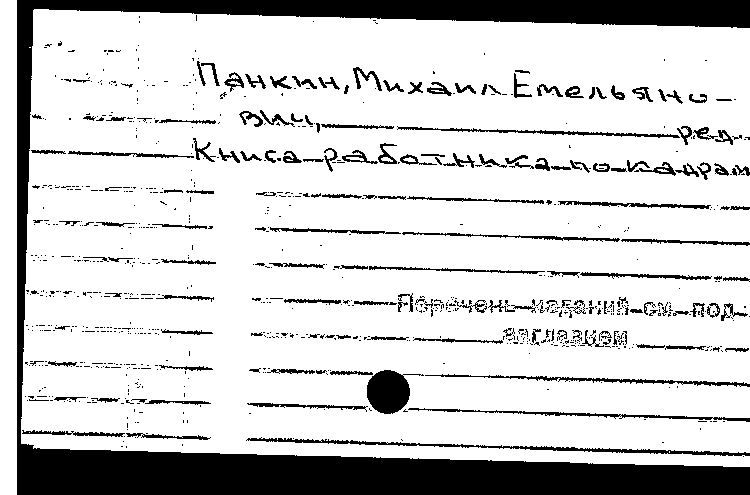 Панкин, Михаил Емельяно-
вич, ред.
Книга работника по кадрам
Перечень изданий см. под
заглавием